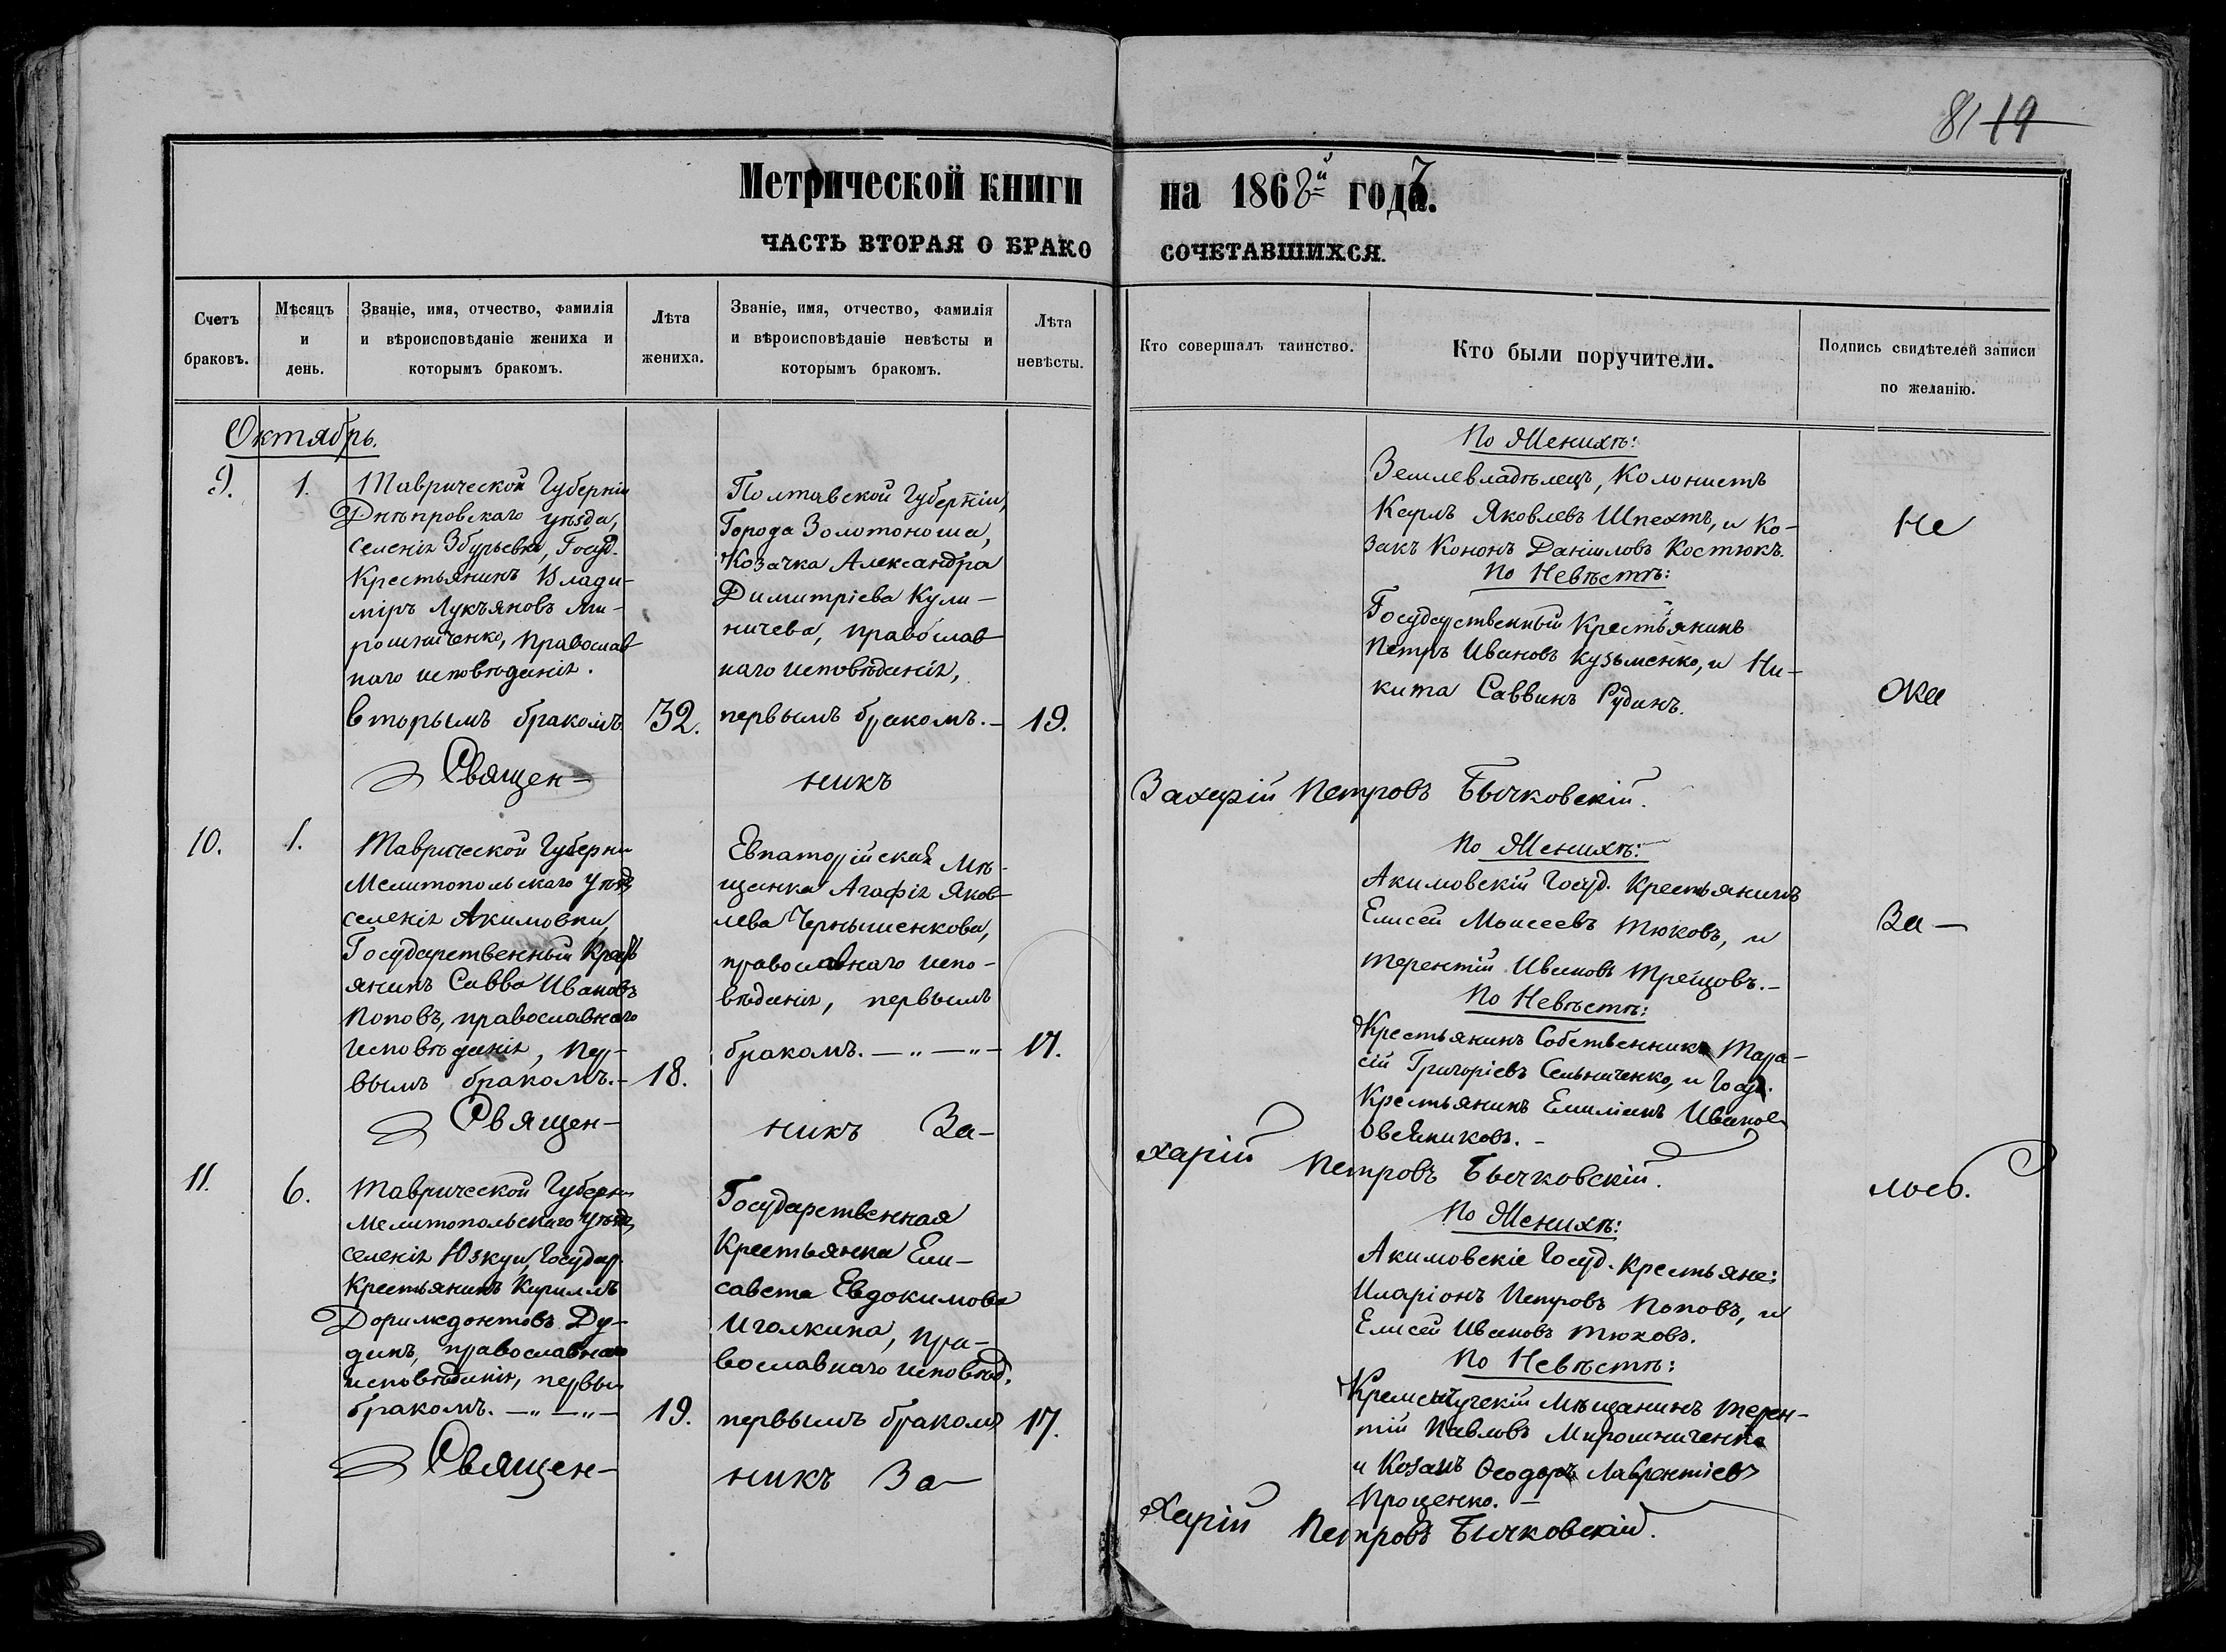 81 19
Метрической книги на 1868й годъ.
ЧАСТЬ ВТОРАЯ О БРАКОСОЧЕТАВШИХСЯ.
Счетъ
браковъ.
Мѣсяцъ
и
день.
Званіе, имя, отчество, фамилія
и вѣроисповѣданіе жениха и
которымъ бракомъ.
Лѣта
жениха.
Званіе, имя, отчество, фамилія
и вѣроисповѣданіе невѣсты и
которымъ бракомъ.
Лѣта
невѣсты.
Кто совершалъ таинство.
Кто были поручители.
Подпись свидѣтелей записи
по желанію.
Октябрь.
9.
1.
Таврической Губерніи
Днѣпровскаго уѣзда,
селенія Збурьевки, Госуд.
Крестьянинъ Влади-
міръ Лукъяновъ Ми-
рошниченко, православ
наго исповѣданія.
вторымъ бракомъ.
32.
Полтавской Губерніи,
Города Золотоноша,
Козачка Александра
Димитріева Кули-
ничева, православ
наго исповѣданія,
первымъ бракомъ.-
19.
По Женихѣ:
Землевладѣлецъ, Колонистъ
Карлъ Яковлевъ Шпехтъ, и Ко-
закъ Кононъ Даніиловъ Костюкъ.
По Невѣстѣ:
Государственный Крестьянинъ
Петръ Ивановъ Кузьменко, и Ни-
кита Саввинъ Рудинъ.
Не
ока
Священ-
никъ
Захарій Петровъ Бычковскій.
10.
1.
Таврической Губерніи
Мелитопольскаго Уѣзд
селенія Акимовки,
Государственный Крест
янинъ Савва Ивановъ
Поповъ, православнаго
исповѣданія, пер-
вымъ бракомъ.-
18.
Евпаторійская Мѣ-
щанка Агафія Яков-
лева Чернышенкова,
православнаго испо-
вѣданія, первымъ
бракомъ. — „ — „ —
17.
По Женихѣ:
Акимовскій Госуд. Крестьянинъ
Елисей Моисеевъ Тюковъ, и
Терентій Ивановъ Трещовъ.-
По Невѣстѣ:
Крестьянинъ Собственникъ Тара-
сій Григоріевъ Сельниченко, и Госуд.
Крестьянинъ Емиліанъ Иванов
Овсянниковъ. -
За —
Священ-
никъ За-
харій Петровъ Бычковскій.
лось.
11.
6.
Таврической Губерн
Мелитопольскаго Уѣзд
селенія Юзкуи, Государ.
Крестьянинъ Кириллъ
Доримедонтовъ Ду-
динъ, православнаго
исповѣданія, первым
бракомъ. — „ — „ —
19.
Государственная
Крестьянка Ели-
савета Евдокимова
Иголкина, пра-
вославнаго исповѣд.
первымъ бракомъ
17.
По Женихѣ:
Акимовскіе Госуд. Крестьяне:
Иларіонъ Петровъ Поповъ, и
Елисей Ивановъ Тюковъ.
По Невѣстѣ:
Кременчугскій Мѣщанинъ Терен-
тій Павловъ Мирошниченко
и Козакъ Ѳеодоръ Лаврентіевъ
Проценко. —
Священ-
никъ За
харій Петровъ Бычковскій.